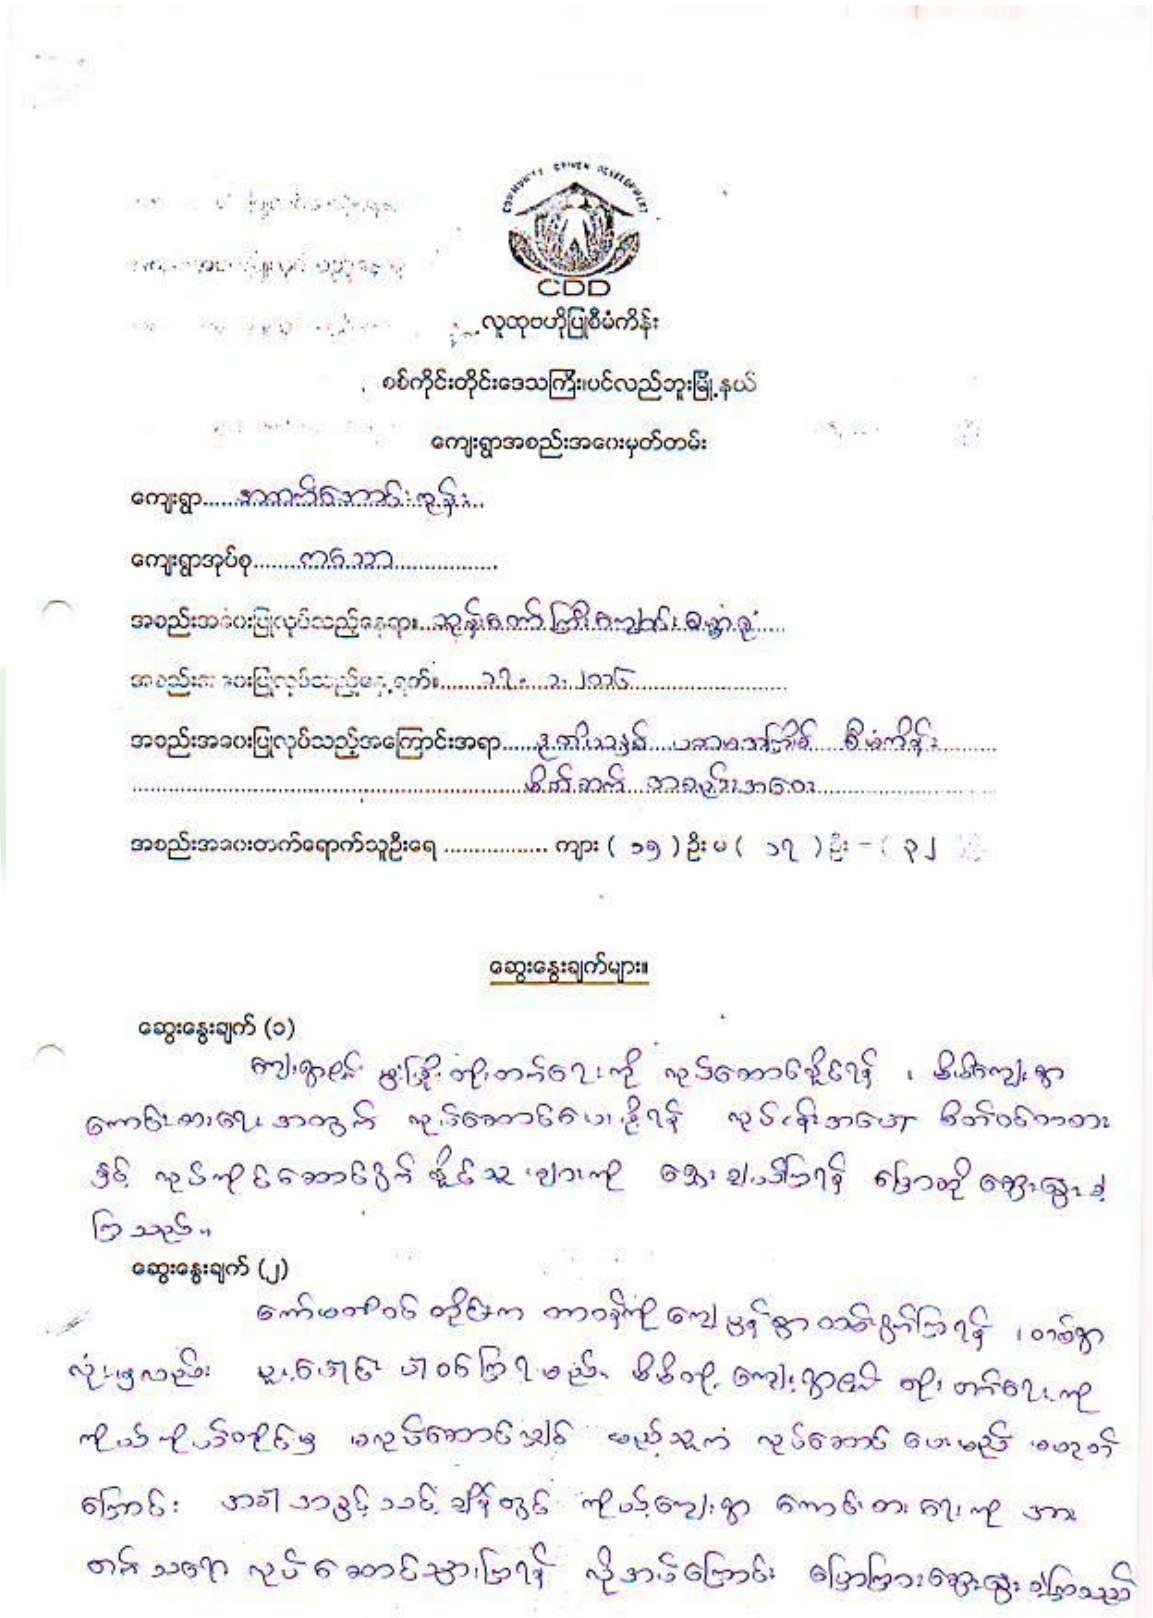 COMMUNITY DRIVEN DEVELOPMENT
CDD
လူထုဗဟိုပြုစီမံကိန်း
စစ်ကိုင်းတိုင်းဒေသကြီး၊ပင်လည်ဘူးမြို့နယ်
ကျေးရွာအစည်းအဝေးမှတ်တမ်း
ကျေးရွာ
ကျေးရွာအုပ်စု.......ကသော
အစည်းအဝေးပြုလုပ်သည့်နေရာ။...ဘုန်းတော်ကြီးကျောင်း ဓမ္မာရုံ
အစည်းအဝေးပြုလုပ်သည့်နေ့ရက်။......၁၇-၁-၂၀၁၆
အစည်းအဝေးပြုလုပ်သည့်အကြောင်းအရာ......ဒုတိယနှစ် ပထမအကြိမ် စီမံကိန်း
မိတ်ဆက် အစည်းအဝေး
အစည်းအဝေးတက်ရောက်သူဦးရေ ................. ကျား ( ၁၅ ) ဦး မ ( ၁၇ ) ဦး - ( ၃၂
ဆွေးနွေးချက်များ။
ဆွေးနွေးချက် (၁)
ကျေးရွာဖွံ့ဖြိုးတိုးတက်ရေးကို လုပ်ဆောင်နိုင်ရန် ၊ မိမိကျေးရွာ
ကောင်းစားရေး အတွက် လုပ်ဆောင်ပေးနိုင်ရန် လုပ်ငန်းအပေါ် စိတ်ဝင်စားတား
နှင့် လုပ်ကိုင်ဆောင်ရွက် နိုင်သူ များကို ရွေးချယ်ကြရန် ပြောဆိုဆွေးနွေးခဲ့
ကြသည်။
ဆွေးနွေးချက် (၂)
ကော်မတီဝင် တိုင်းက တာဝန်ကို ကျေပွန်စွာ ထမ်းရွက်ကြရန် ၊ တစ်ရွာ
လုံးမှလည်း ပူးပေါင်း ပါဝင်ကြရမည်၊ မိမိတို့ ကျေးရွာဖွံ့ဖြိုး တိုးတက်ရေးကို
ကိုယ်ကိုယ်တိုင်မှ မလုပ်ဆောင်လျှင် မည်သူကမှ လုပ်ဆောင် ပေးမည် မဟုတ်
ကြောင်း အခါအခွင့်သင့်ချိန်တွင် ကိုယ့်ကျေးရွာ ကောင်းစားရေးကို အား
တက်သရော လုပ်ဆောင်သွားကြရန် လိုအပ်ကြောင်း ပြောကြားဆွေးနွေးခဲ့ကြသည်